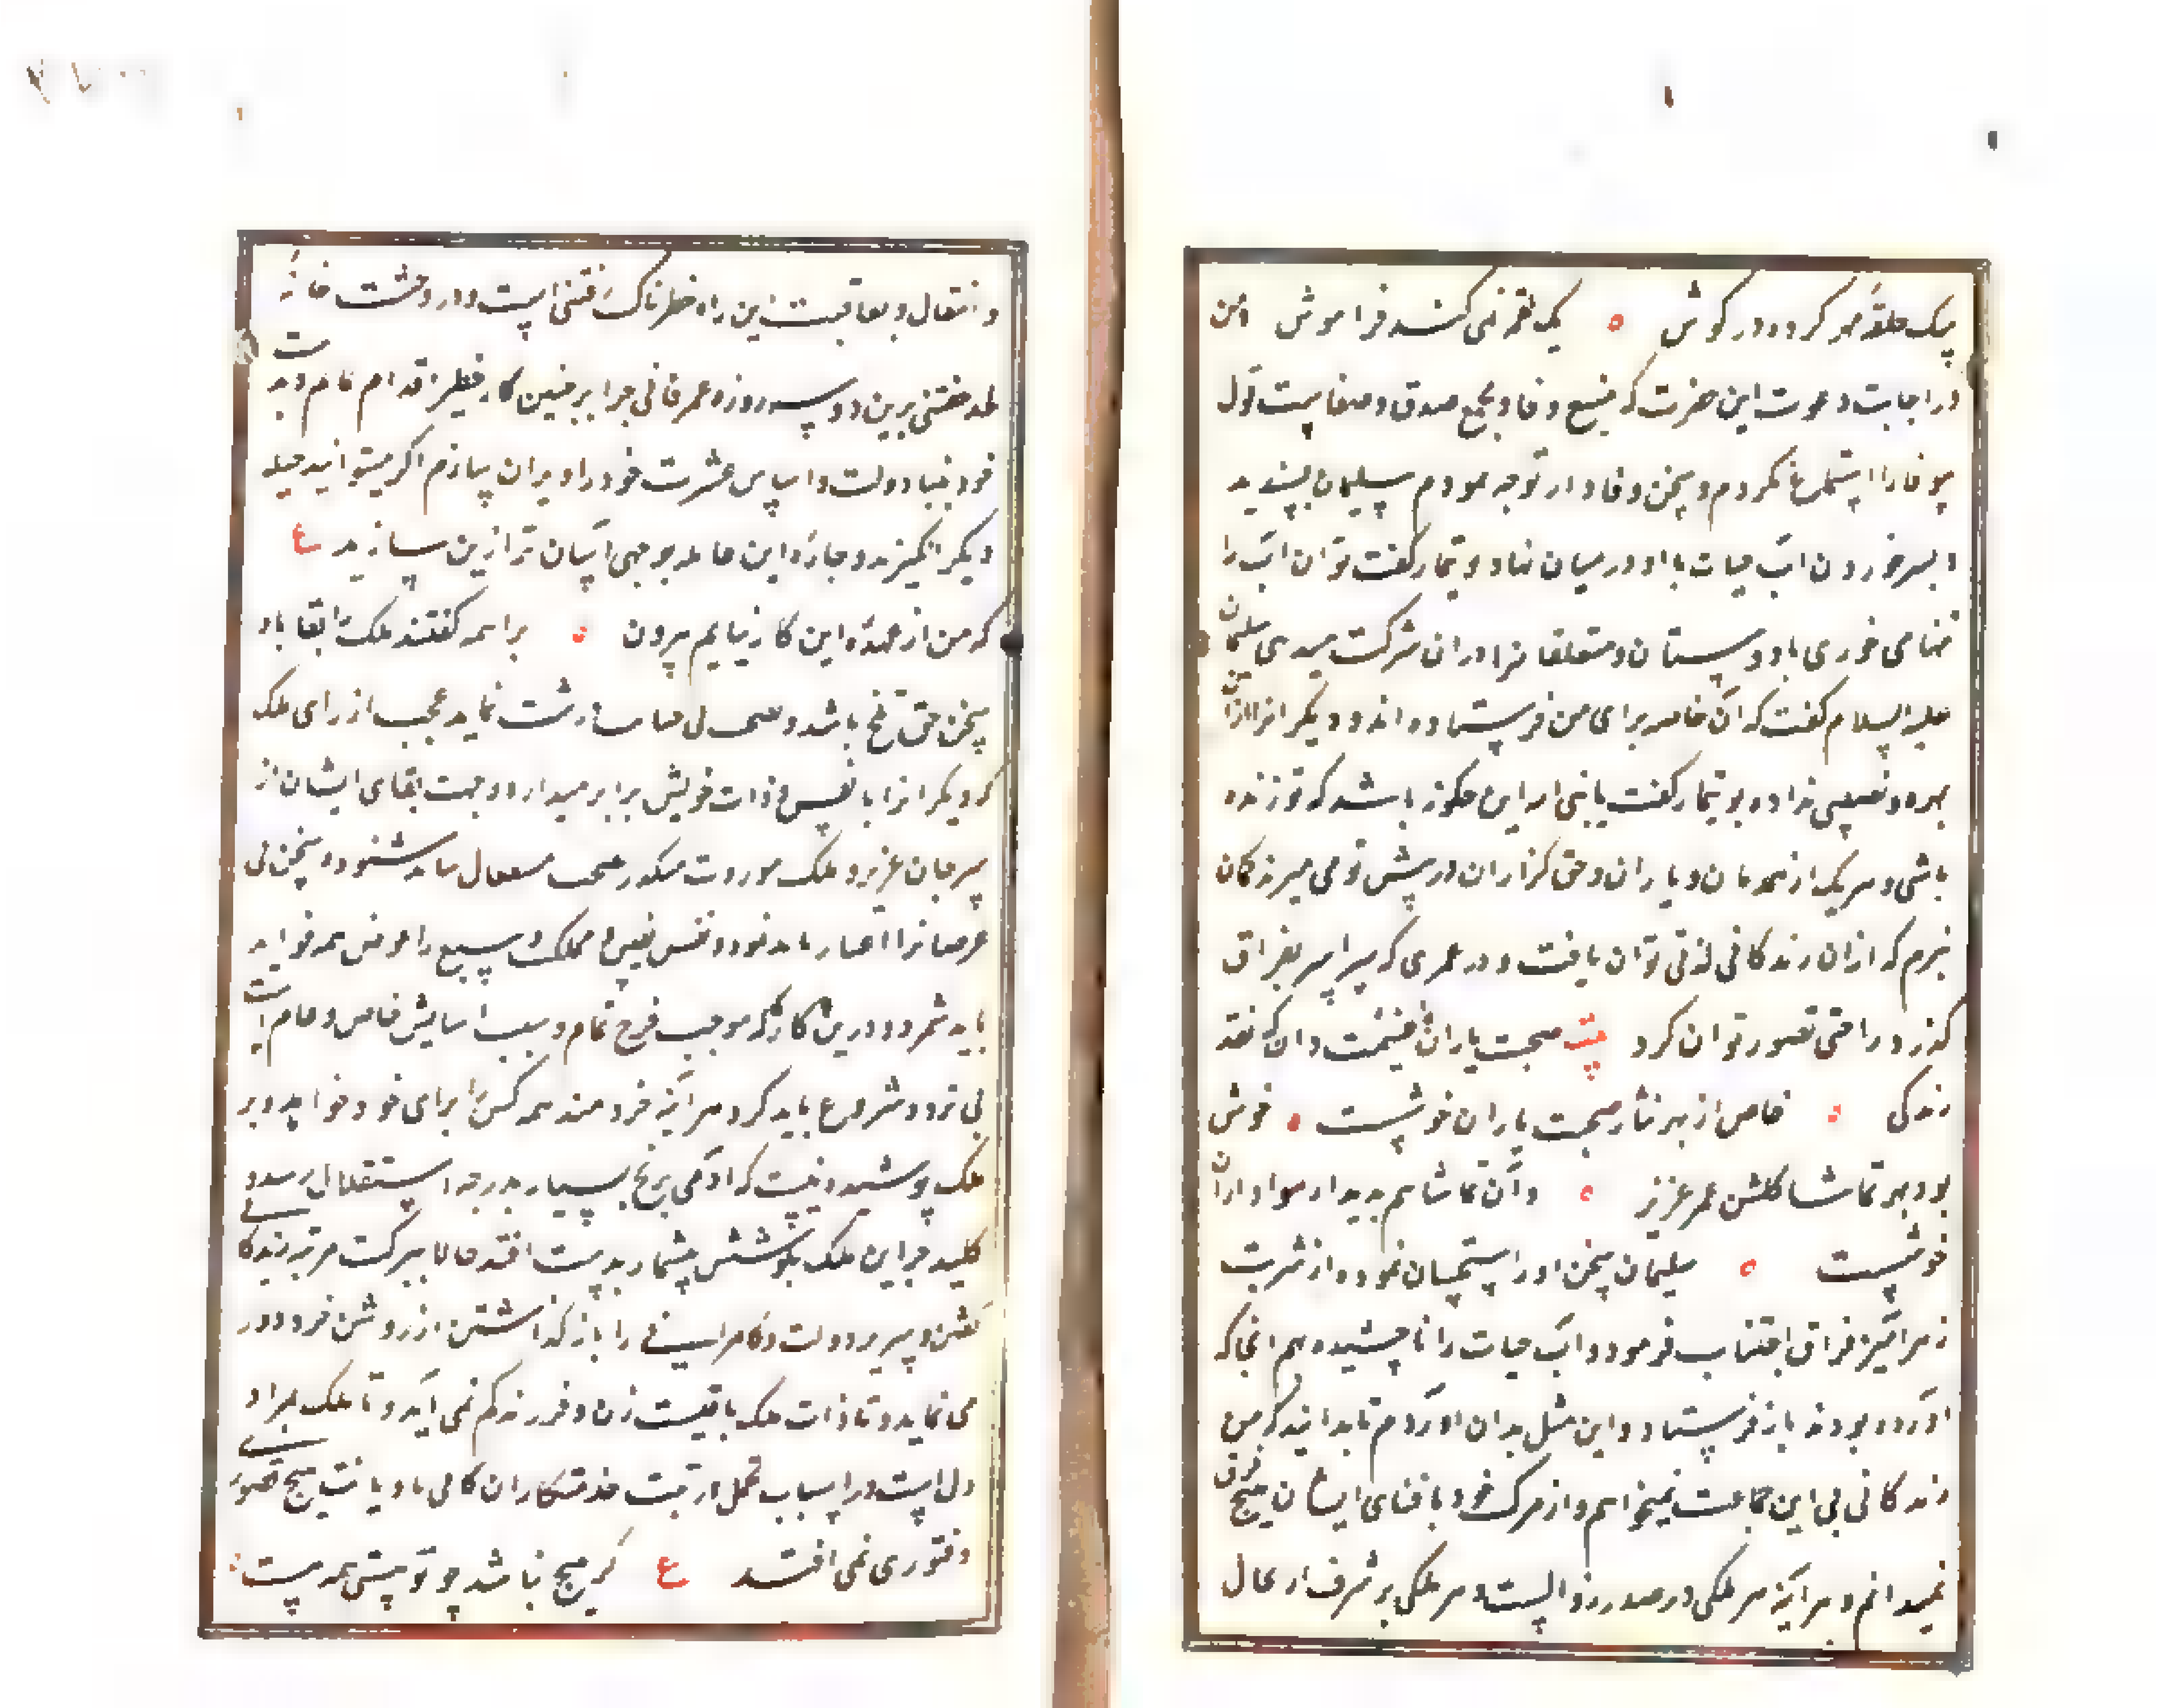 سک حلقهٔ مهر کرده در کوش یک لقمه نمی کند فراموش و من
در اجابت دعوت این حضرت که منبع وفا و مجمع صدق و صفاست قول
بیوفا را استماع نکردم و سخن وفادار توجه نمودم سلیمان بپسندید
و بسر خوردن آب حیات با او در میان نهاد بوتیمار کفت تو ان آب را
تنها می خوری یا دوستان و متعلقانرا در ان شرکت میدهی سلیمان
علیه السلام کفت که آن خاصه برای من فرستاده اند و دیگرانرا ازان
بهره و نصیبی نداده بوتیمار کفت یا نبی الله این چکونه باشد که تو زنده
باشی و هر یک از همدمان و یاران و حق کزاران در پیش تو می میرند کمان
نبرم که ازان زندکانی لذتی توان یافت و در عمری که سراسر بفراق
کذرد راحتی تصور توان کرد بیت صحبت یاران غنیمت دان که نقد
زندکی خاص از بهر نثار صحبت یاران خوشست خوش
بود بهر تماشا کلشن عمر عزیز و آن تماشا هم بدیدار هواداران
خوشست سلیمان سخن او را استحسان نموده از شربت
زهر آمیز فراق اجتناب فرمود و آب حیات را ناچشیده هم انجا که
آورده بودند باز فرستاد و این مثل بدان آوردم تا بدانید که من
زندکانی بی این جماعت نمیخواهم و از مرک خود با فنای ایشان هیچ فرق
نمیدانم و هر آینه هر ملکی در صدد زوالست و هر ملکی بر شرف ارتحال
و انتقال و بعاقبت این راه خطرناک رفتنی است و در وحشت خانهٔ
لحد خفتنی برین دو سه روزه عمر فانی چرا بر چنین کار خطیر اقدام نمایم و بدست
خود بنیاد دولت و اساس عشرت خود را ویران سازم اکر میتوانید حیله
دیکر انکیزند و چارهٔ این حادثه بوجهی آسان تر ازین سازید ع
که من از عهدهٔ این کار نیایم بیرون براهمه کفتند ملک را بقا باد
سخن حق تلخ باشد و نصیحت بی محابا درشت نماید عجب از رای ملک
که دیکرانرا با نفس و ذات خویش برابر میدارد و جهت بقای ایشان از
سر جان عزیز و ملک موروث میکذرد نصیحت مشفقان باید شنود و سخن بی
غرضانرا اعتبار باید نمود و نفس نفیس و مملکت وسیع را عوض همه فواید
باید شمرد و درین کار که موجب فرح تمام و سبب آسایش خاص و عام است
بی تردد شروع باید کرد هر آینه خردمند همه کس را برای خود خواهد و بر
ملک پوشیده نیست که آدمی برنج بسیار بدرجهٔ استقلال رسد و
کلید این ملک بکوشش بیشمار بدست افتد حالا بترک مرتبهٔ زندکانی
کفتن و سریر دولت و کامرانی را باز کذاشتن از روشن خرد دور
می نماید و تا ذات ملک باقیست زن و فرزند کم نمی آید و تا ملک بمراد
دل است در اسباب تجمل و تربیت خدمتکاران کافی با دیانت هیچ قصوری
و فتوری نمی افتد ع کر هیچ نباشد چو تو هستی همه هست